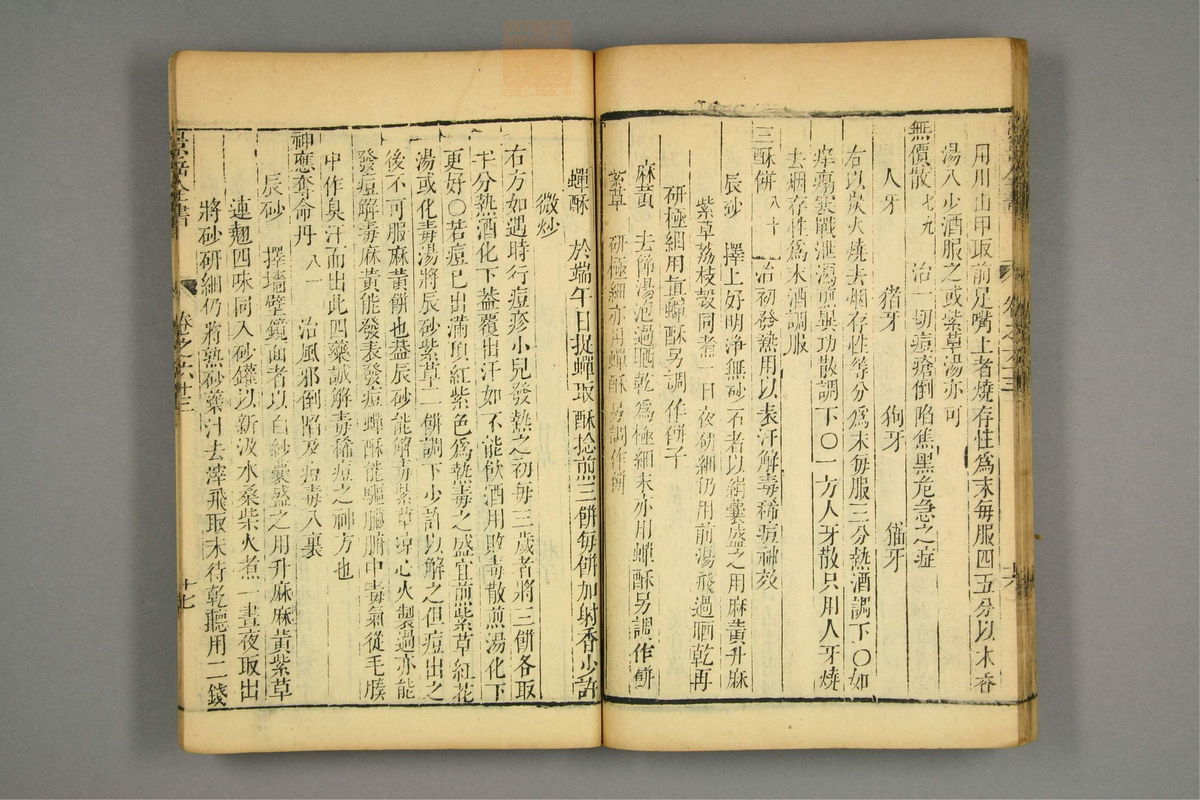 用川山甲取前足嘴上者燒存性爲末每服四五分以木香
湯入少酒服之或紫草湯亦可
無價散 七九 治一切痘瘡倒陷焦黑危急之症
人牙 猪牙 狗牙 猫牙
右以炭火燒去烟存性等分爲末每服三分熱酒調下〇如
痒塌寒戰泄瀉煎異功散調下〇一方人牙散只用人牙燒
去烟存性爲末酒調服
三酥餅 八十 治初發熱用以表汗解毒稀痘神效
辰砂 擇上好明淨無砂石者以絹囊盛之用麻黄升麻
紫草荔枝殼同煮一日夜研細仍用前湯飛過晒乾再
研極細用眞蟬酥另調作餅子
麻黄 去節湯泡過晒乾爲極細末亦用蟬酥另調作餅
紫草 研極細亦用蟬酥另調作餅
蟬酥 於端午日捉蟬取酥捻煎三餅每餅加射香少許
微炒
右方如遇時行痘疹小兒發熱之初每三歲者將三餅各取
半分熱酒化下蓋覆出汗如不能飲酒用敗毒散煎湯化下
更好〇若痘已出滿頂紅紫色爲熱毒之盛宜煎紫草紅花
湯或化毒湯將辰砂紫草二餅調下少許以解之但痘出之
後不可服麻黄餅也葢辰砂能解毒紫草涼心火製過亦能
發痘解毒麻黄能發表發痘蟬酥能驅臟腑中毒氣從毛腠
中作臭汗而出此四藥誠解毒稀痘之神方也
神應奪命丹 八一 治風邪倒陷及痘毒入裏
辰砂 擇墻壁鏡面者以白紗囊盛之用升麻麻黄紫草
連翹四味同入砂罐以新汲水桑柴火煮一晝夜取出
將砂研細仍將熟砂藥汁去滓飛取末待乾聽用二錢
景岳全書
卷之六十三
十七